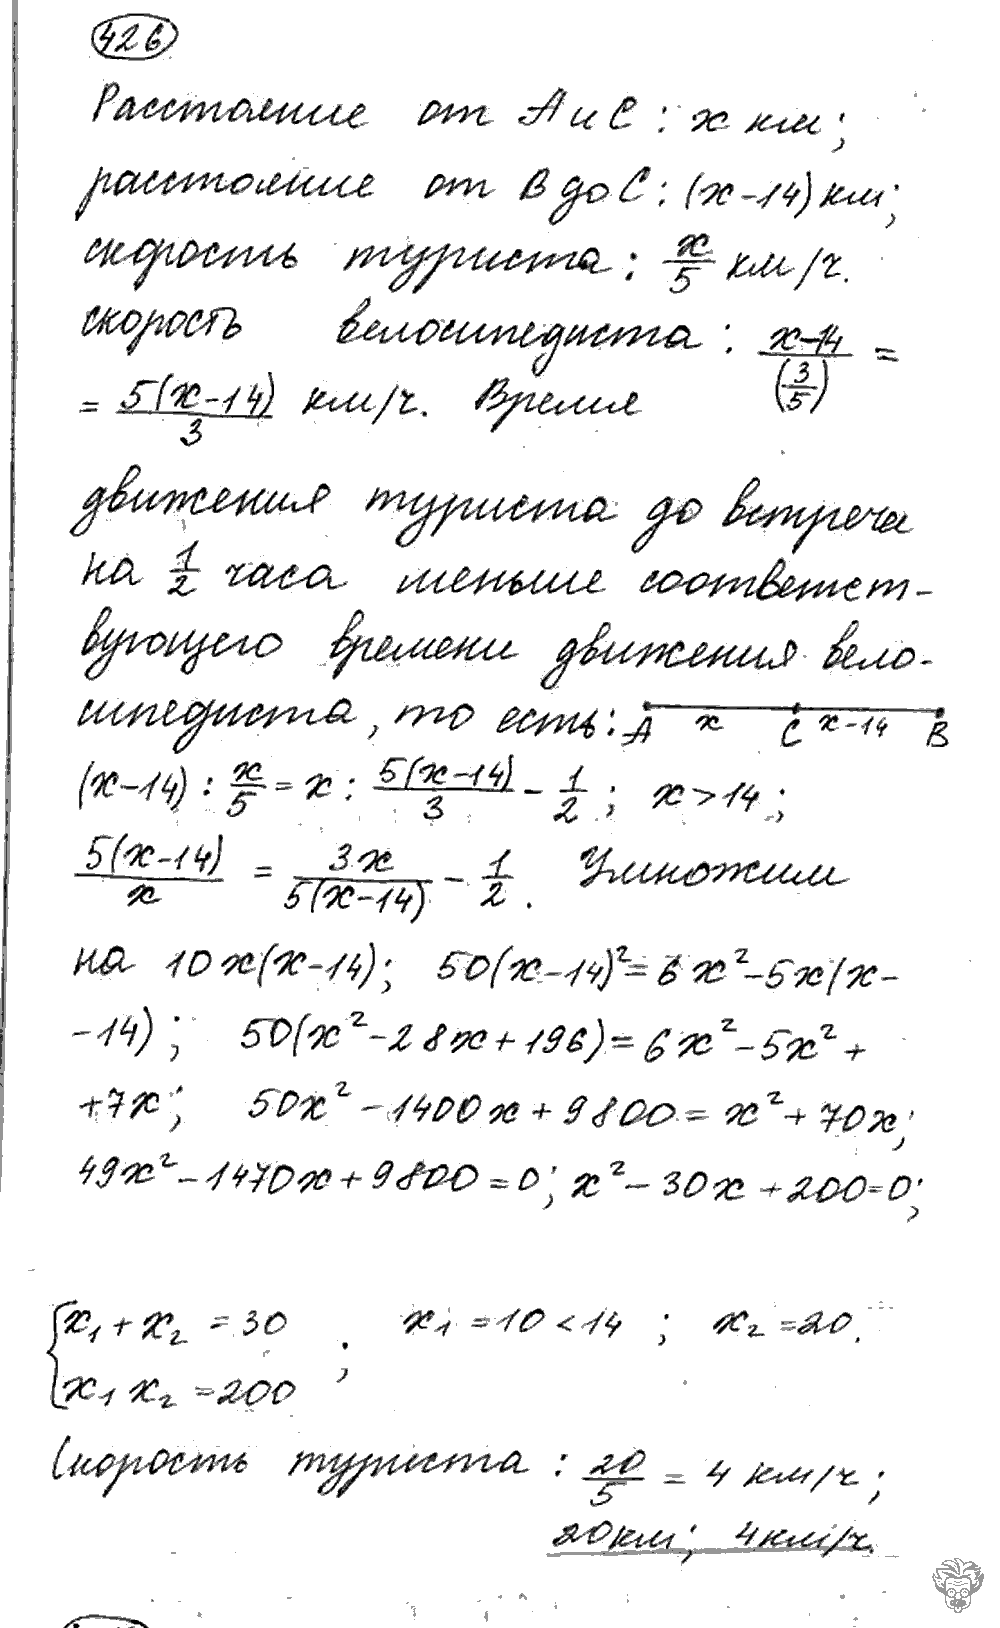 426
Расстояние от А и С: x км;
расстояние от В до С: (x-14) км;
скорость туриста: x/5 км/ч.
скорость велосипедиста: x-14/(3/5) =
= 5(x-14)/3 км/ч. Время
движения туриста до встречи
на 1/2 часа меньше соответст-
вующего времени движения вело-
сипедиста, то есть: A x C x-14 B
(x-14) : x/5 = x : 5(x-14)/3 - 1/2 ; x > 14 ;
5(x-14)/x = 3x/5(x-14) - 1/2 . Умножим
на 10x(x-14); 50(x-14)² = 6x² - 5x(x-
-14) ; 50(x² - 28x + 196) = 6x² - 5x² +
+7x ; 50x² - 1400x + 9800 = x² + 70x;
49x² - 1470x + 9800 = 0; x² - 30x + 200 = 0;
{x₁ + x₂ = 30 ; x₁ = 10 < 14 ; x₂ = 20.
x₁ x₂ = 200
Скорость туриста : 20/5 = 4 км/ч ;
20 км; 4 км/ч.